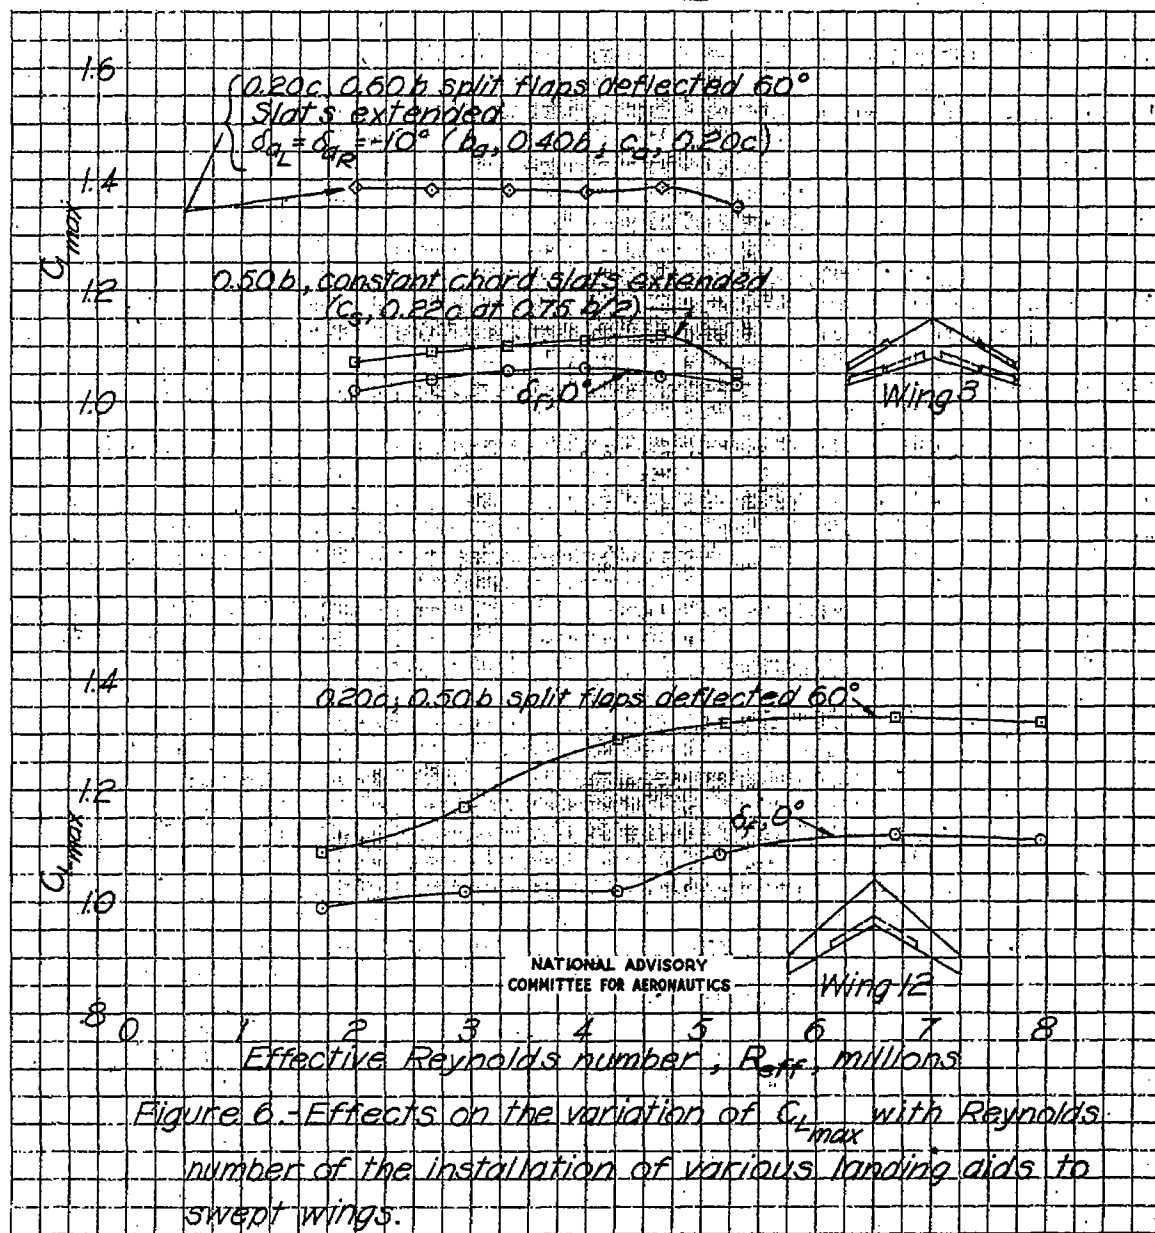 1.6
{0.20c, 0.60b split flaps deflected 60°
Slats extended
δaL = δaR = -10° (ba, 0.40b; ca, 0.20c)
1.4
CLmax
0.50b, constant chord slats extended
1.2
(cs, 0.22c at 0.75 b/2)
δf, 0°
1.0
Wing 3
1.4
0.20c, 0.50b split flaps deflected 60°
1.2
δf, 0°
CLmax
1.0
NATIONAL ADVISORY
COMMITTEE FOR AERONAUTICS
Wing 12
.8
0 1 2 3 4 5 6 7 8
Effective Reynolds number, Reff, millions
Figure 6.-Effects on the variation of CLmax with Reynolds
number of the installation of various landing aids to
swept wings.